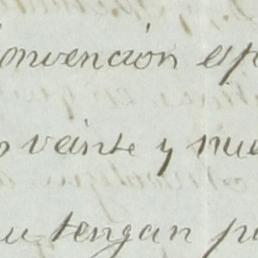 onvención esp
veinte y nue
tengan p